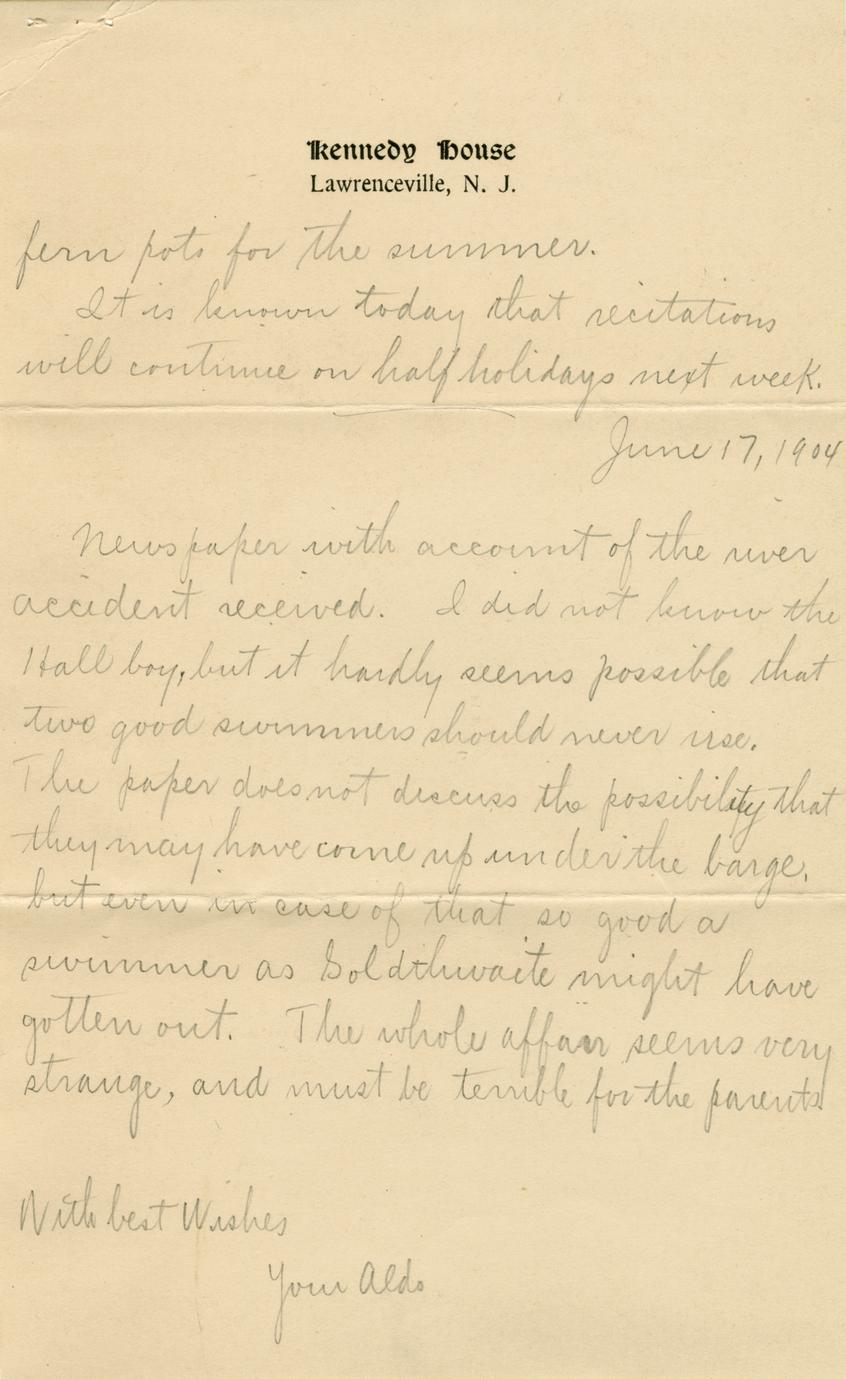 Kennedy House
Lawrenceville, N. J.
fern pots for the summer.
It is known today that recitations
will continue on half holidays next week.
June 17, 1904
Newspaper with account of the river
accident received. I did not know the
Hall boy, but it hardly seems possible that
two good swimmers should never rise.
The paper does not discuss the possibility that
they may have come up under the barge,
but even in case of that so good a
swimmer as Goldthwaite might have
gotten out. The whole affair seems very
strange, and must be terrible for the parents.
With best Wishes
Your Aldo